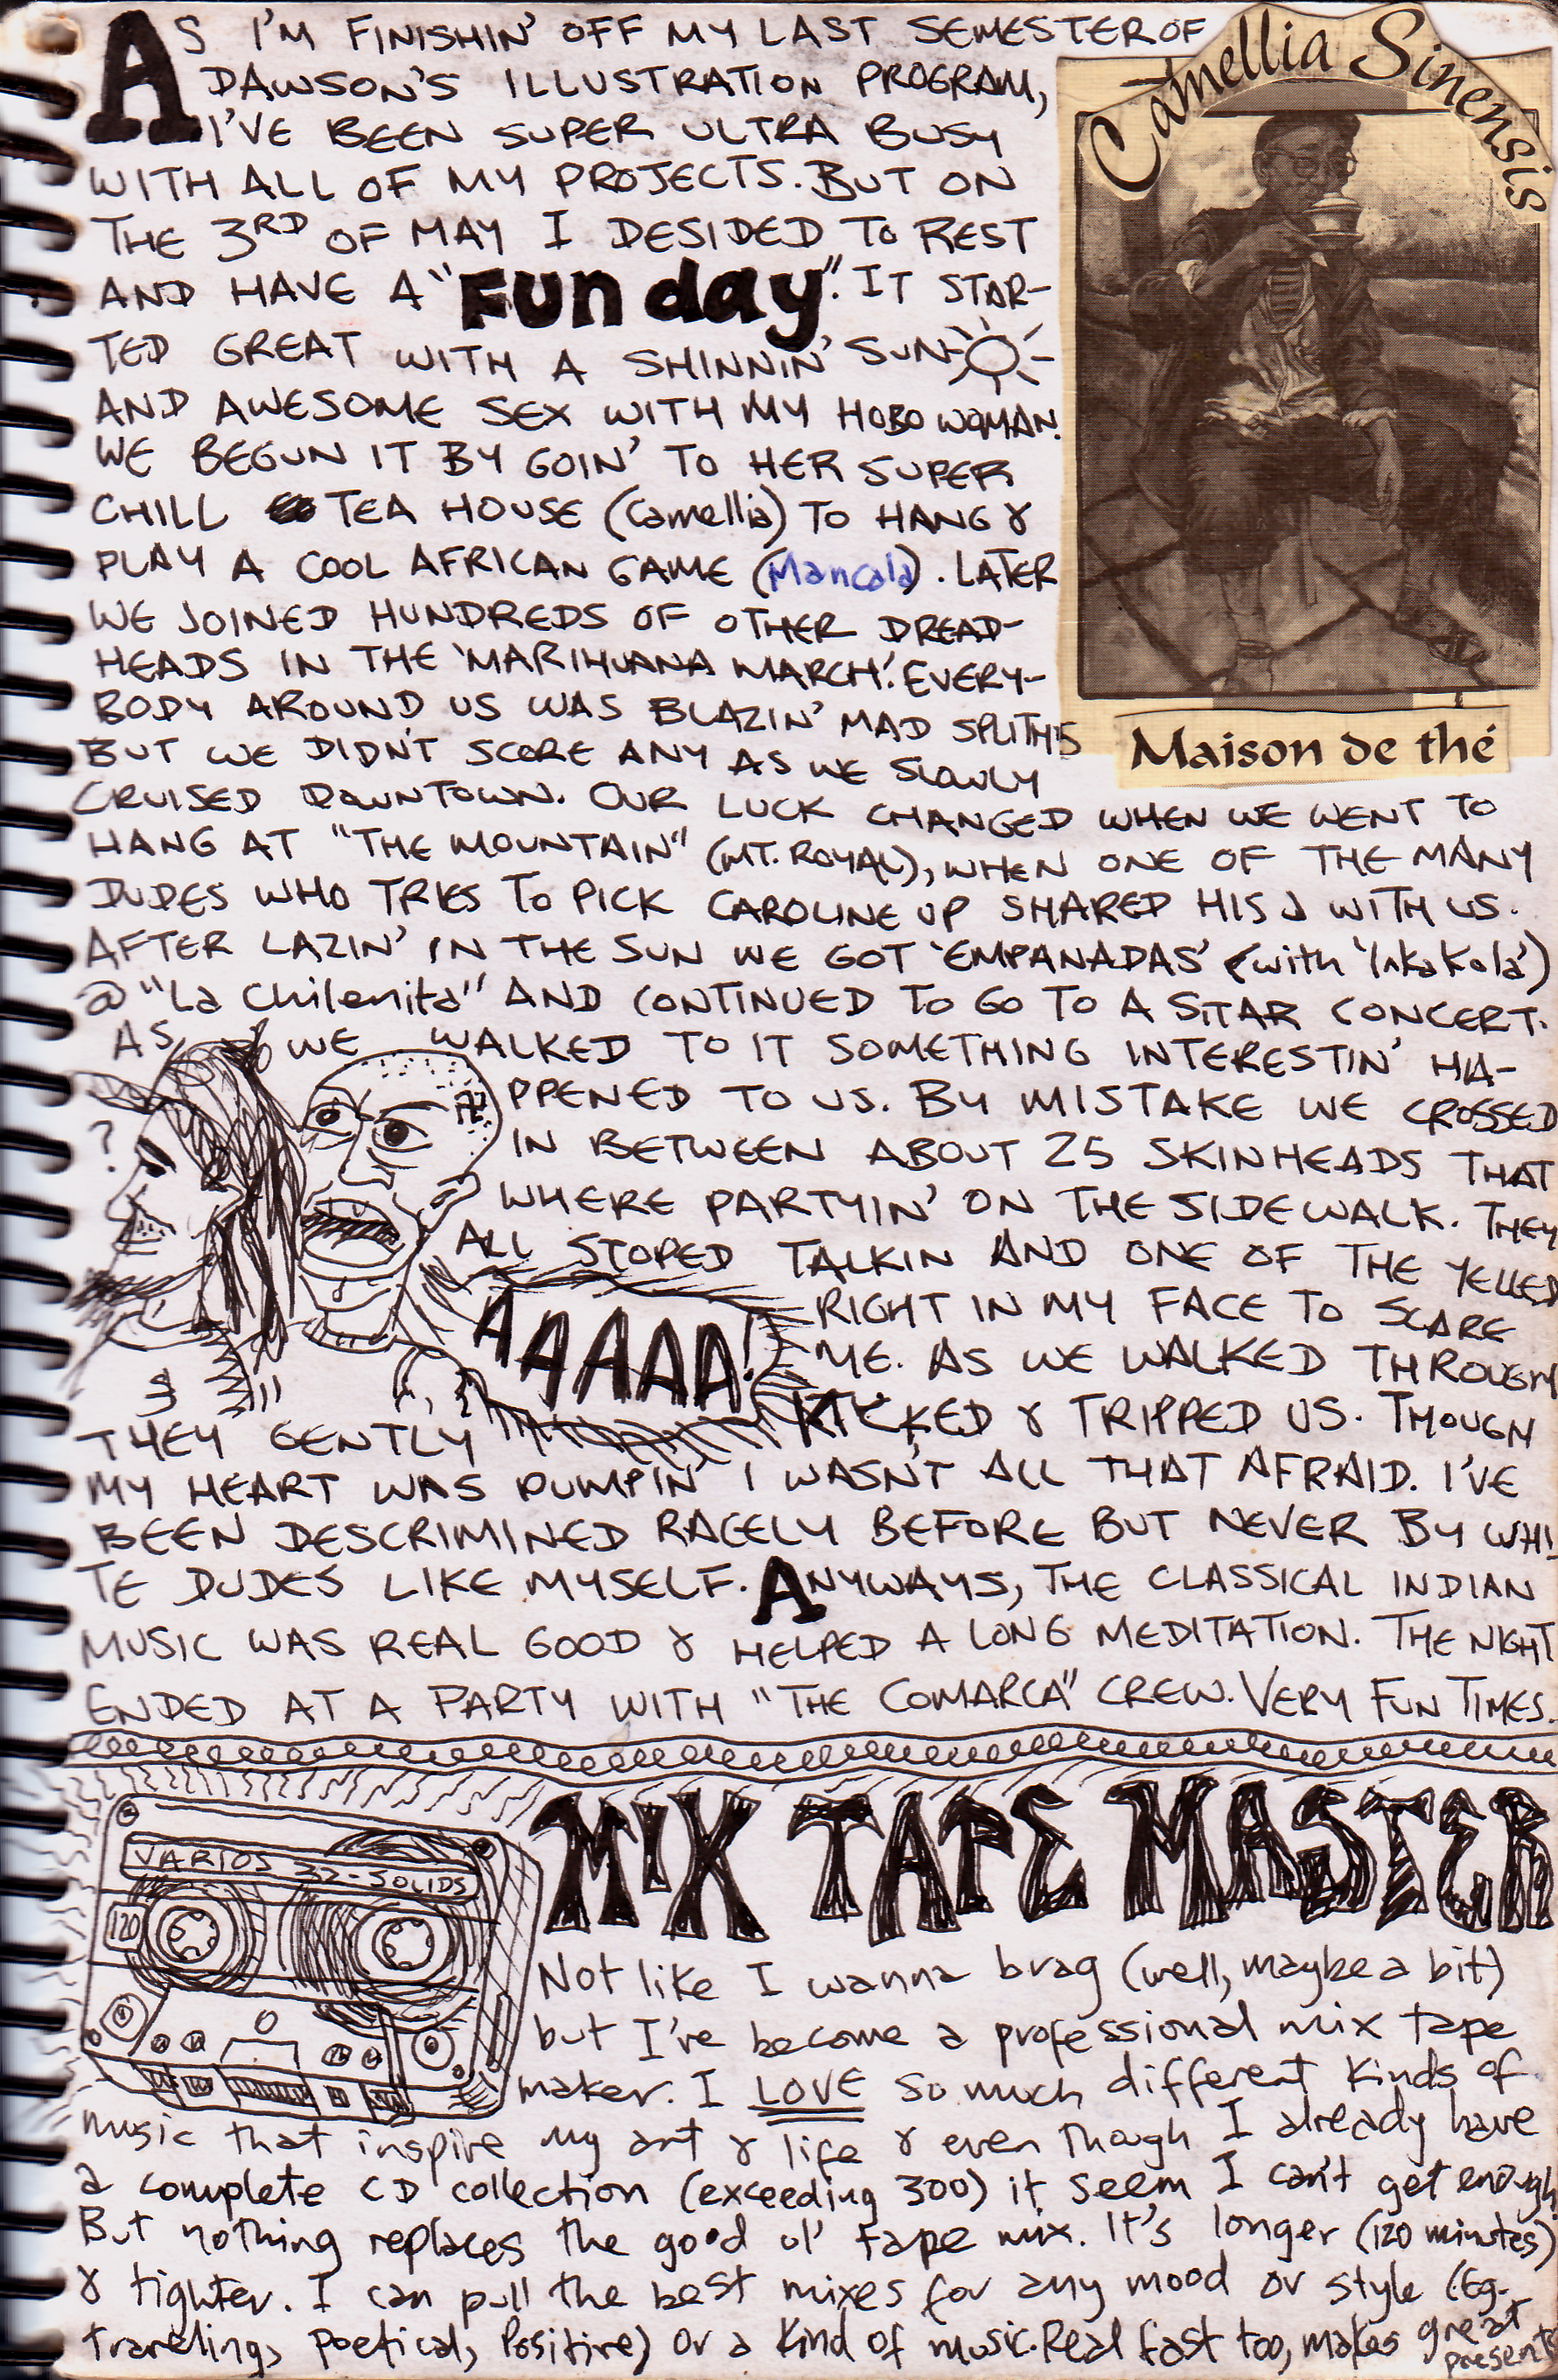 AS I'M FINISHIN' OFF MY LAST SEMESTER OF
DAWSON'S ILLUSTRATION PROGRAM,
I'VE BEEN SUPER ULTRA BUSY
WITH ALL OF MY PROJECTS. BUT ON
THE 3RD OF MAY I DESIDED TO REST
AND HAVE A "FUN day". IT STAR-
TED GREAT WITH A SHINNIN' SUN
AND AWESOME SEX WITH MY HOBO WOMAN.
WE BEGUN IT BY GOIN' TO HER SUPER
CHILL TEA HOUSE (Camellia) TO HANG &
PLAY A COOL AFRICAN GAME (Mancala). LATER
WE JOINED HUNDREDS OF OTHER DREAD-
HEADS IN THE 'MARIHUANA MARCH'. EVERY-
BODY AROUND US WAS BLAZIN' MAD SPLITHS
BUT WE DIDN'T SCORE ANY AS WE SLOWLY
CRUISED DOWNTOWN. OUR LUCK CHANGED WHEN WE WENT TO
HANG AT "THE MOUNTAIN" (MT. ROYAL), WHEN ONE OF THE MANY
DUDES WHO TRIES TO PICK CAROLINE UP SHARED HIS J WITH US.
AFTER LAZIN' IN THE SUN WE GOT 'EMPANADAS' (with 'Inka Kola')
@ "La Chilenita" AND CONTINUED TO GO TO A SITAR CONCERT.
AS WE WALKED TO IT SOMETHING INTERESTIN' HA-
PPENED TO US. BY MISTAKE WE CROSSED
IN BETWEEN ABOUT 25 SKINHEADS THAT
WHERE PARTYIN' ON THE SIDEWALK. THEY
ALL STOPED TALKIN AND ONE OF THE YELLED
RIGHT IN MY FACE TO SCARE
ME. AS WE WALKED THROUGH
THEY GENTLY KICKED & TRIPPED US. THOUGH
MY HEART WAS PUMPIN' I WASN'T ALL THAT AFRAID. I'VE
BEEN DESCRIMINED RACELY BEFORE BUT NEVER BY WHI
TE DUDES LIKE MYSELF. ANYWAYS, THE CLASSICAL INDIAN
MUSIC WAS REAL GOOD & HELPED A LONG MEDITATION. THE NIGHT
ENDED AT A PARTY WITH "THE COMARCA" CREW. VERY FUN TIMES.
Camellia Sinensis
Maison de thé
?
AAAAAA!
VARIOS 32-SOLIDS
120
MIX TAPE MASTER
Not like I wanna brag (well, maybe a bit)
but I've become a professional mix tape
maker. I LOVE so much different kinds of
music that inspire my art & life & even though I already have
a complete CD collection (exceeding 300) it seem I can't get enough.
But nothing replaces the good ol' tape mix. It's longer (120 minutes)
& tighter. I can pull the best mixes for any mood or style (Eg.
traveling, poetical, positive) or a kind of music. Real fast too, makes great
presents